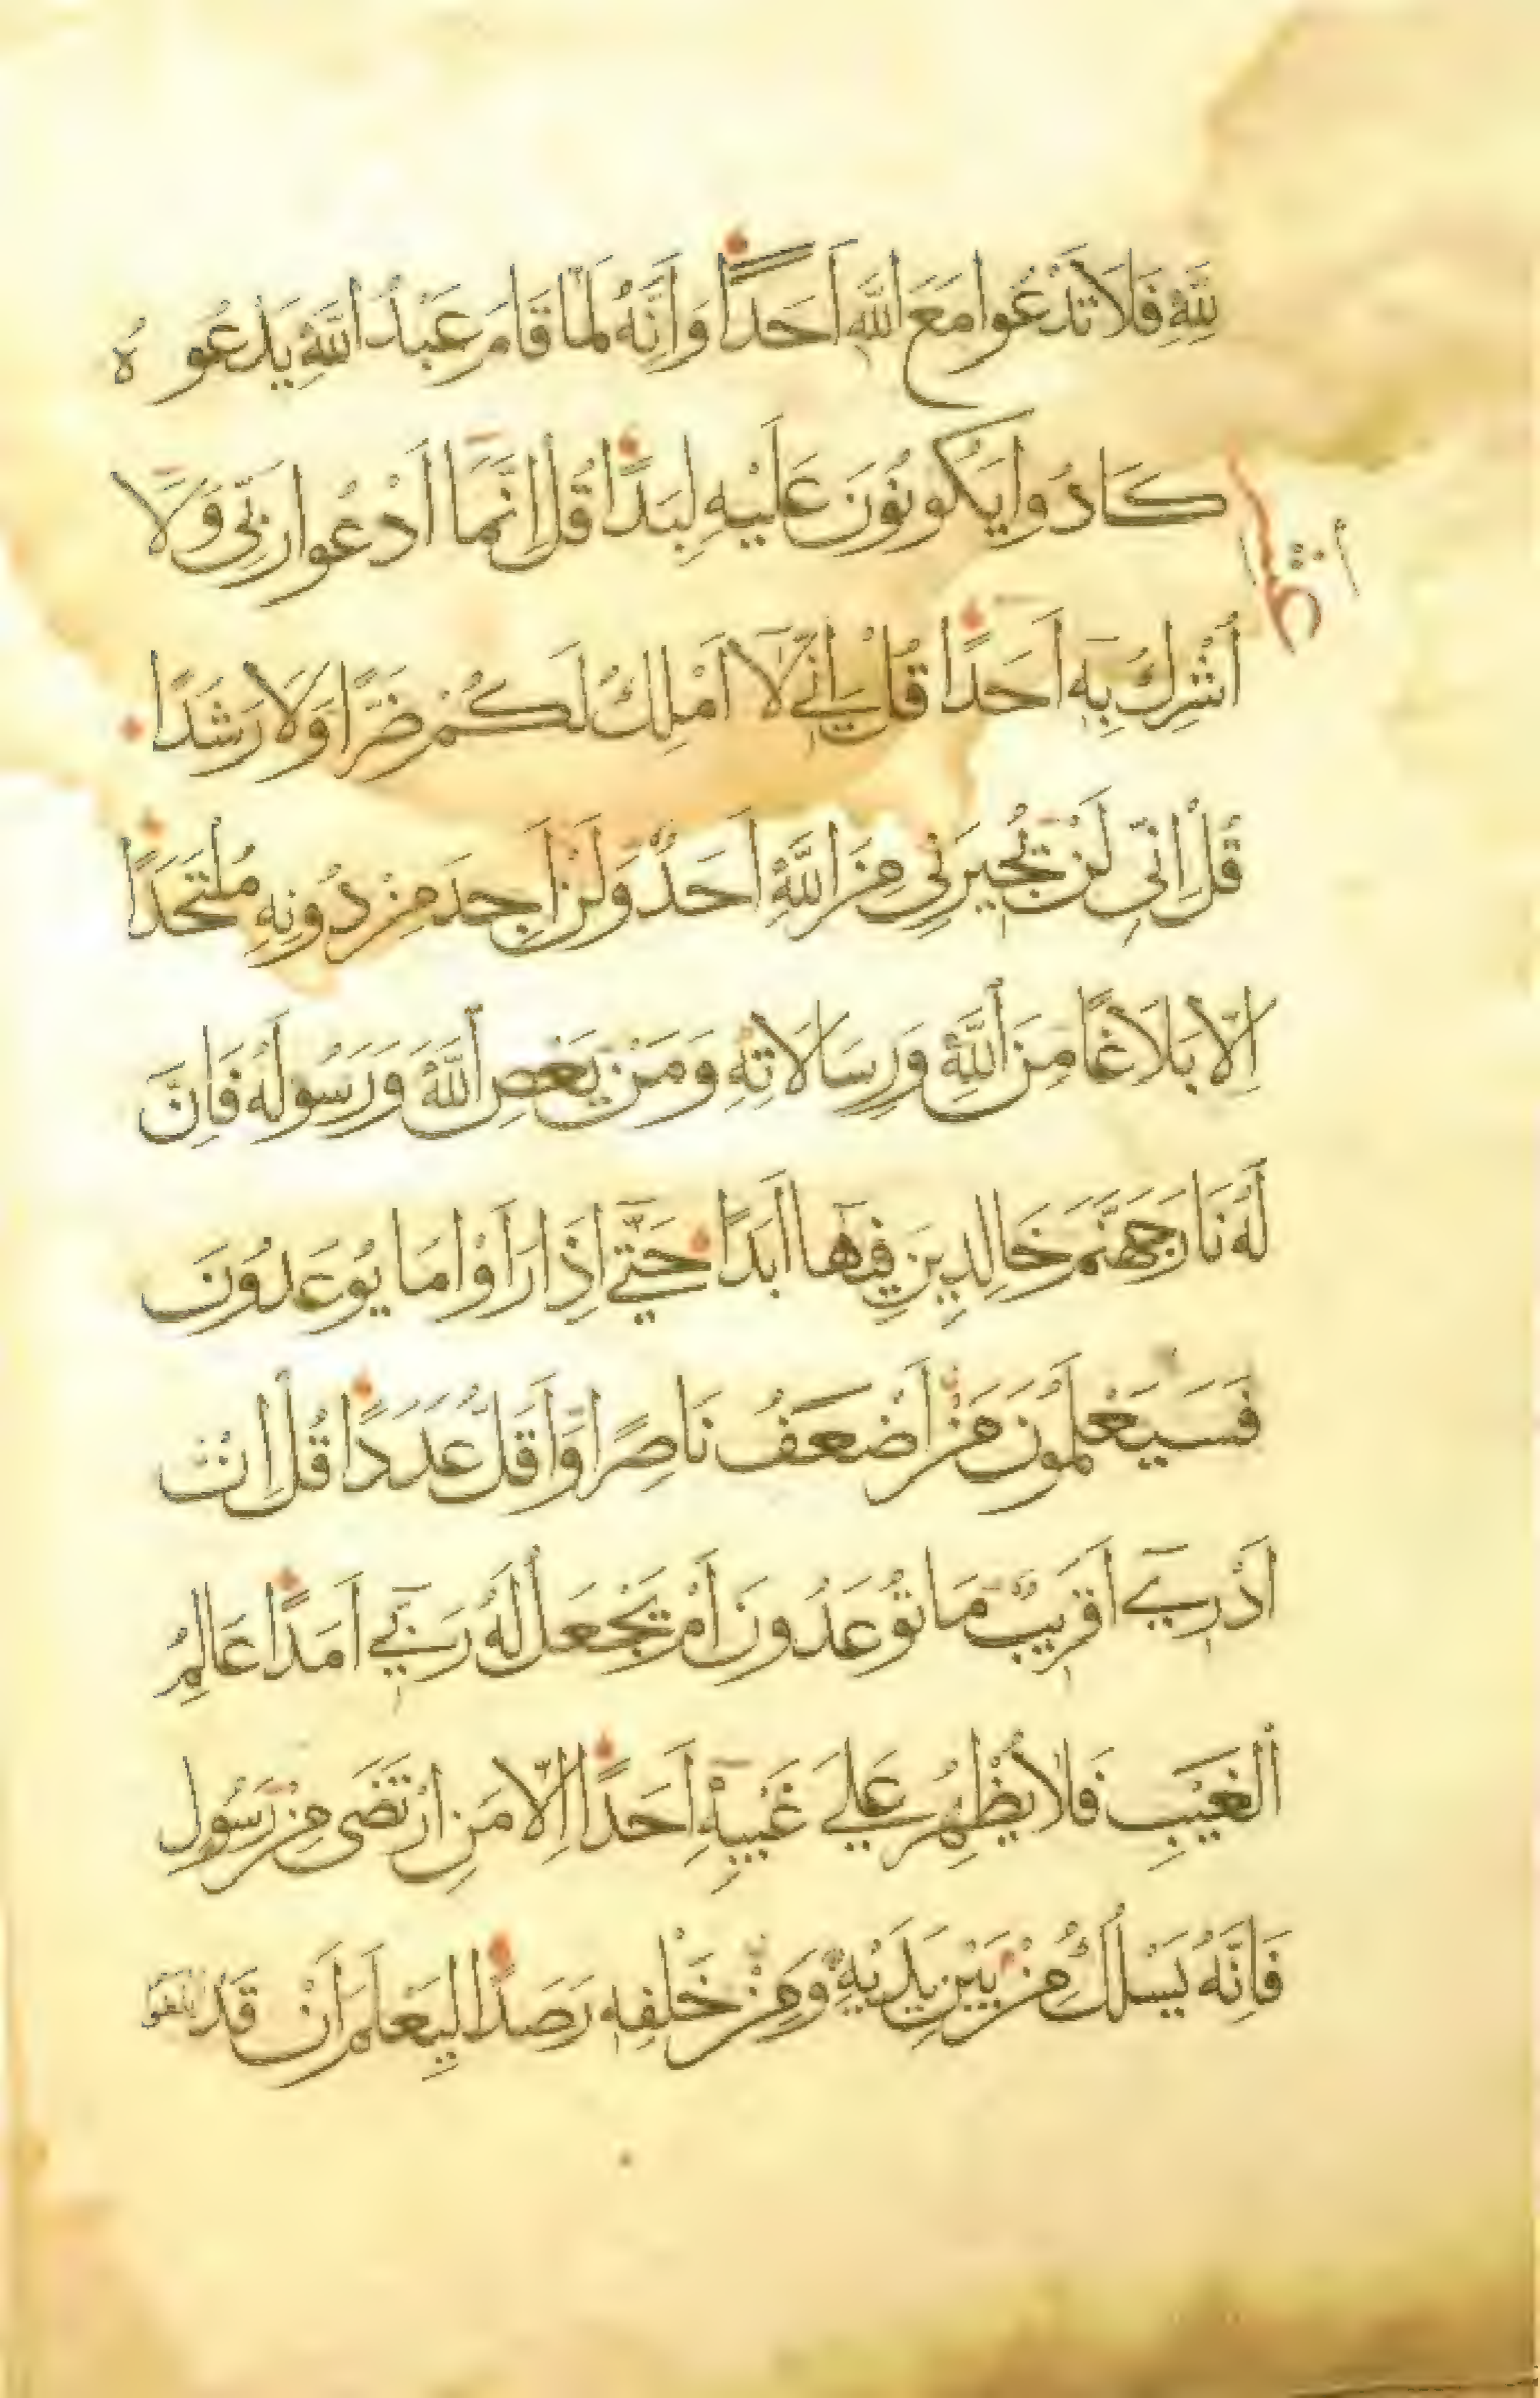 لِلَّهِ فَلَا تَدْعُوا مَعَ اللَّهِ أَحَدًا وَأَنَّهُ لَمَّا قَامَ عَبْدُ اللَّهِ يَدْعُوهُ
كَادُوا يَكُونُونَ عَلَيْهِ لِبَدًا قُلْ إِنَّمَا أَدْعُوا رَبِّي وَلَا
أُشْرِكُ بِهِ أَحَدًا قُلْ إِنِّي لَا أَمْلِكُ لَكُمْ ضَرًّا وَلَا رَشَدًا
قُلْ إِنِّي لَنْ يُجِيرَنِي مِنَ اللَّهِ أَحَدٌ وَلَنْ أَجِدَ مِنْ دُونِهِ مُلْتَحَدًا
إِلَّا بَلَاغًا مِنَ اللَّهِ وَرِسَالَاتِهِ وَمَنْ يَعْصِ اللَّهَ وَرَسُولَهُ فَإِنَّ
لَهُ نَارَ جَهَنَّمَ خَالِدِينَ فِيهَا أَبَدًا حَتَّى إِذَا رَأَوْا مَا يُوعَدُونَ
فَسَيَعْلَمُونَ مَنْ أَضْعَفُ نَاصِرًا وَأَقَلُّ عَدَدًا قُلْ إِنْ
أَدْرِي أَقَرِيبٌ مَا تُوعَدُونَ أَمْ يَجْعَلُ لَهُ رَبِّي أَمَدًا عَالِمُ
الْغَيْبِ فَلَا يُظْهِرُ عَلَى غَيْبِهِ أَحَدًا إِلَّا مَنِ ارْتَضَى مِنْ رَسُولٍ
فَإِنَّهُ يَسْلُكُ مِنْ بَيْنِ يَدَيْهِ وَمِنْ خَلْفِهِ رَصَدًا لِيَعْلَمَ أَنْ قَدْ أَبْلَغُوا